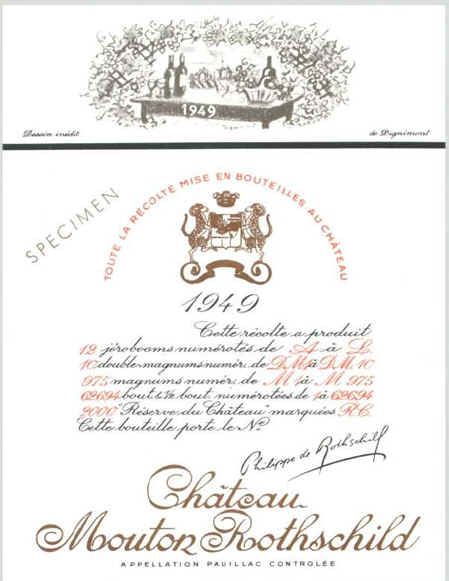 1949
Dessin inédit
de Dignimont
SPECIMEN
TOUTE LA RÉCOLTE MISE EN BOUTEILLES AU CHÂTEAU
1949
Cette récolte a produit
12 jéroboams numérotés de A à L
10 double magnums numér. de D.M.1 à D.M. 10
975 magnums numér. de M 1 à M 975
62694 bout. & ½ bout. numérotées de 1 à 62694
2000 "Réserve du Château" marquées R.C.
Cette bouteille porte le Nº
Philippe de Rothschild
Château
Mouton Rothschild
APPELLATION PAUILLAC CONTROLÉE